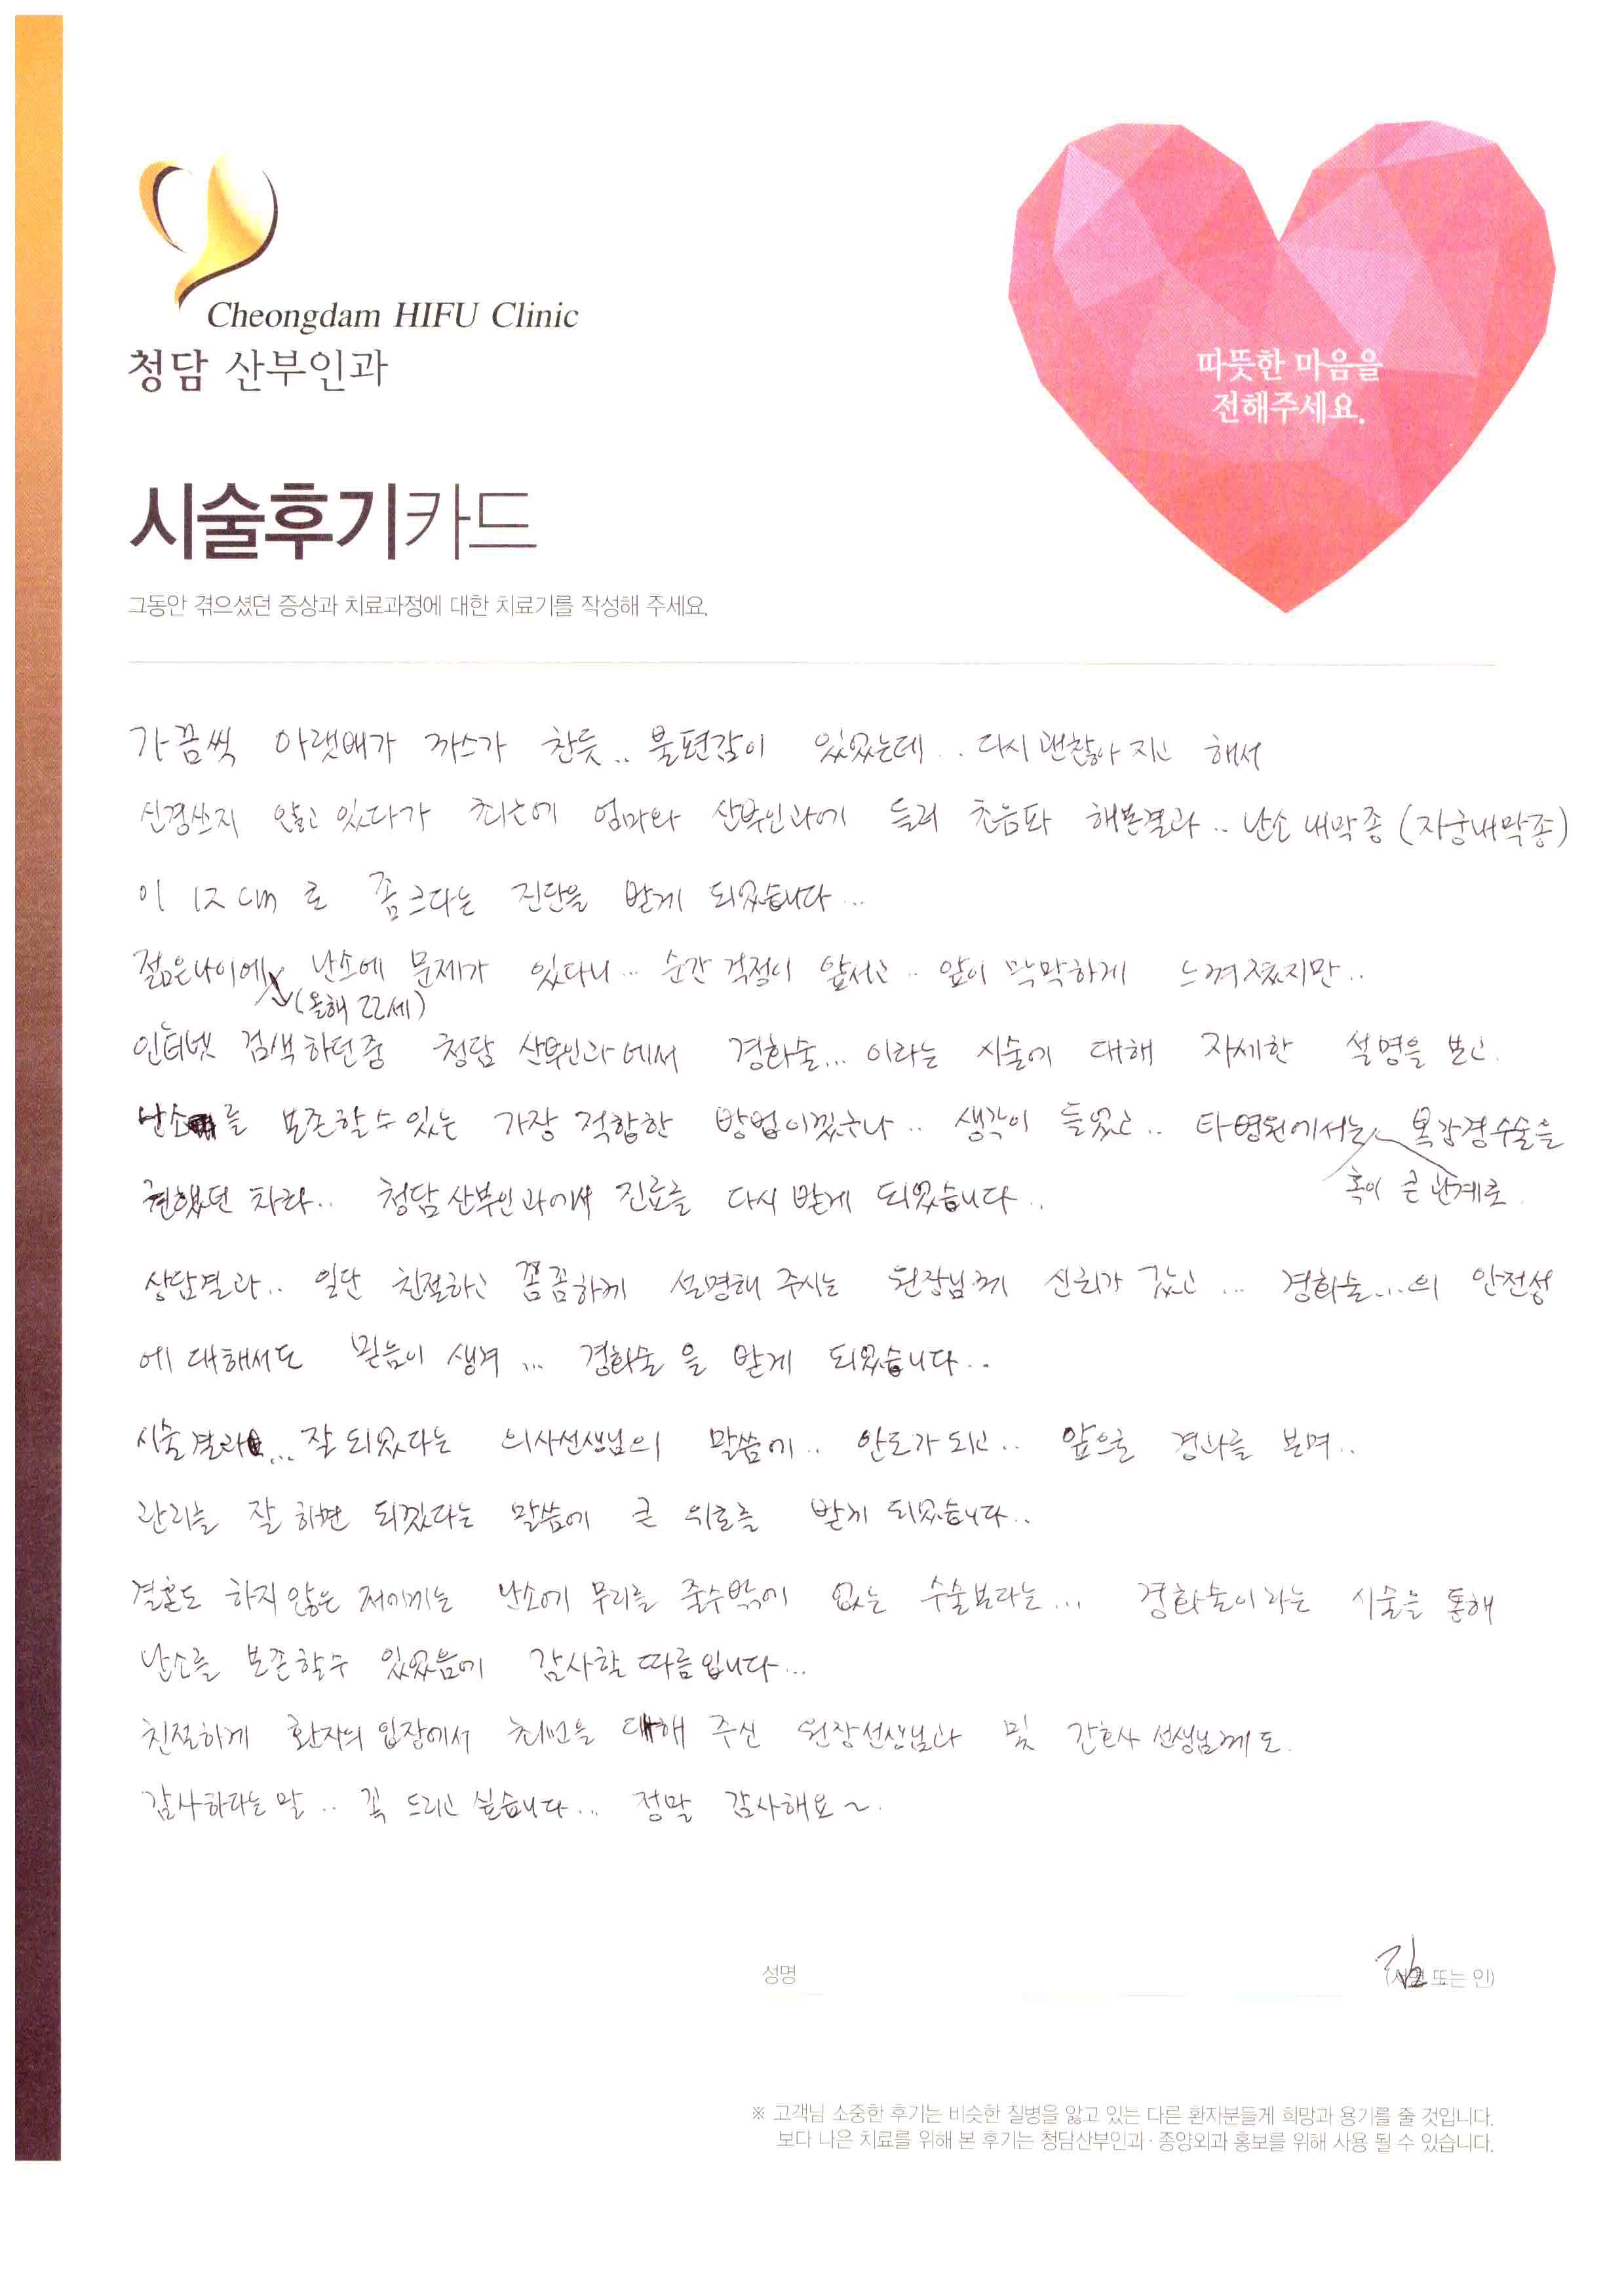 Cheongdam HIFU Clinic
청담 산부인과
따뜻한 마음을
전해주세요.
시술후기카드
그동안 겪으셨던 증상과 치료과정에 대한 치료기를 작성해 주세요.
가끔씩 아랫배가 까스가 찬듯.. 불편감이 있었는데.. 다시 괜찮아 지고 해서
신경쓰지 않고 있다가 최근에 엄마와 산부인과에 들려 초음파 해본결과.. 난소 내막종 (자궁내막종)
이 12cm 로 좀 크다는 진단을 받게 되었습니다...
젊은나이에 난소에 문제가 있다니... 순간 걱정이 앞서고.. 앞이 막막하게 느껴졌지만..
(올해 22세)
인터넷 검색하던중 청담 산부인과에서 경화술... 이라는 시술에 대해 자세한 설명을 보고.
난소를 보존할수있는 가장 적합한 방법이겠구나.. 생각이 들었고.. 타병원에서는 복강경수술을
혹이 큰 관계로
권했던 차라.. 청담산부인과에서 진료를 다시 받게 되었습니다..
상담결과.. 일단 친절하고 꼼꼼하게 설명해 주시는 원장님께 신뢰가 갔고... 경화술...의 안전성
에 대해서도 믿음이 생겨... 경화술을 받게 되었습니다..
시술결과... 잘 되었다는 의사선생님의 말씀에.. 안도가 되고.. 앞으로 경과를 보며..
관리를 잘 하면 되겠다는 말씀에 큰 위로를 받게 되었습니다..
결혼도 하지 않은 저에게는 난소에 무리를 줄수밖에 없는 수술보다는... 경화술이라는 시술을 통해
난소를 보존할수 있었음에 감사할 따름입니다...
친절하게 환자의 입장에서 최선을 대해 주신 원장선생님과 및 간호사 선생님께도.
감사하다는 말.. 꼭 드리고 싶습니다... 정말 감사해요~.
성명
김
(서명 또는 인)
※ 고객님 소중한 후기는 비슷한 질병을 앓고 있는 다른 환자분들게 희망과 용기를 줄 것입니다.
보다 나은 치료를 위해 본 후기는 청담산부인과·종양외과 홍보를 위해 사용 될 수 있습니다.